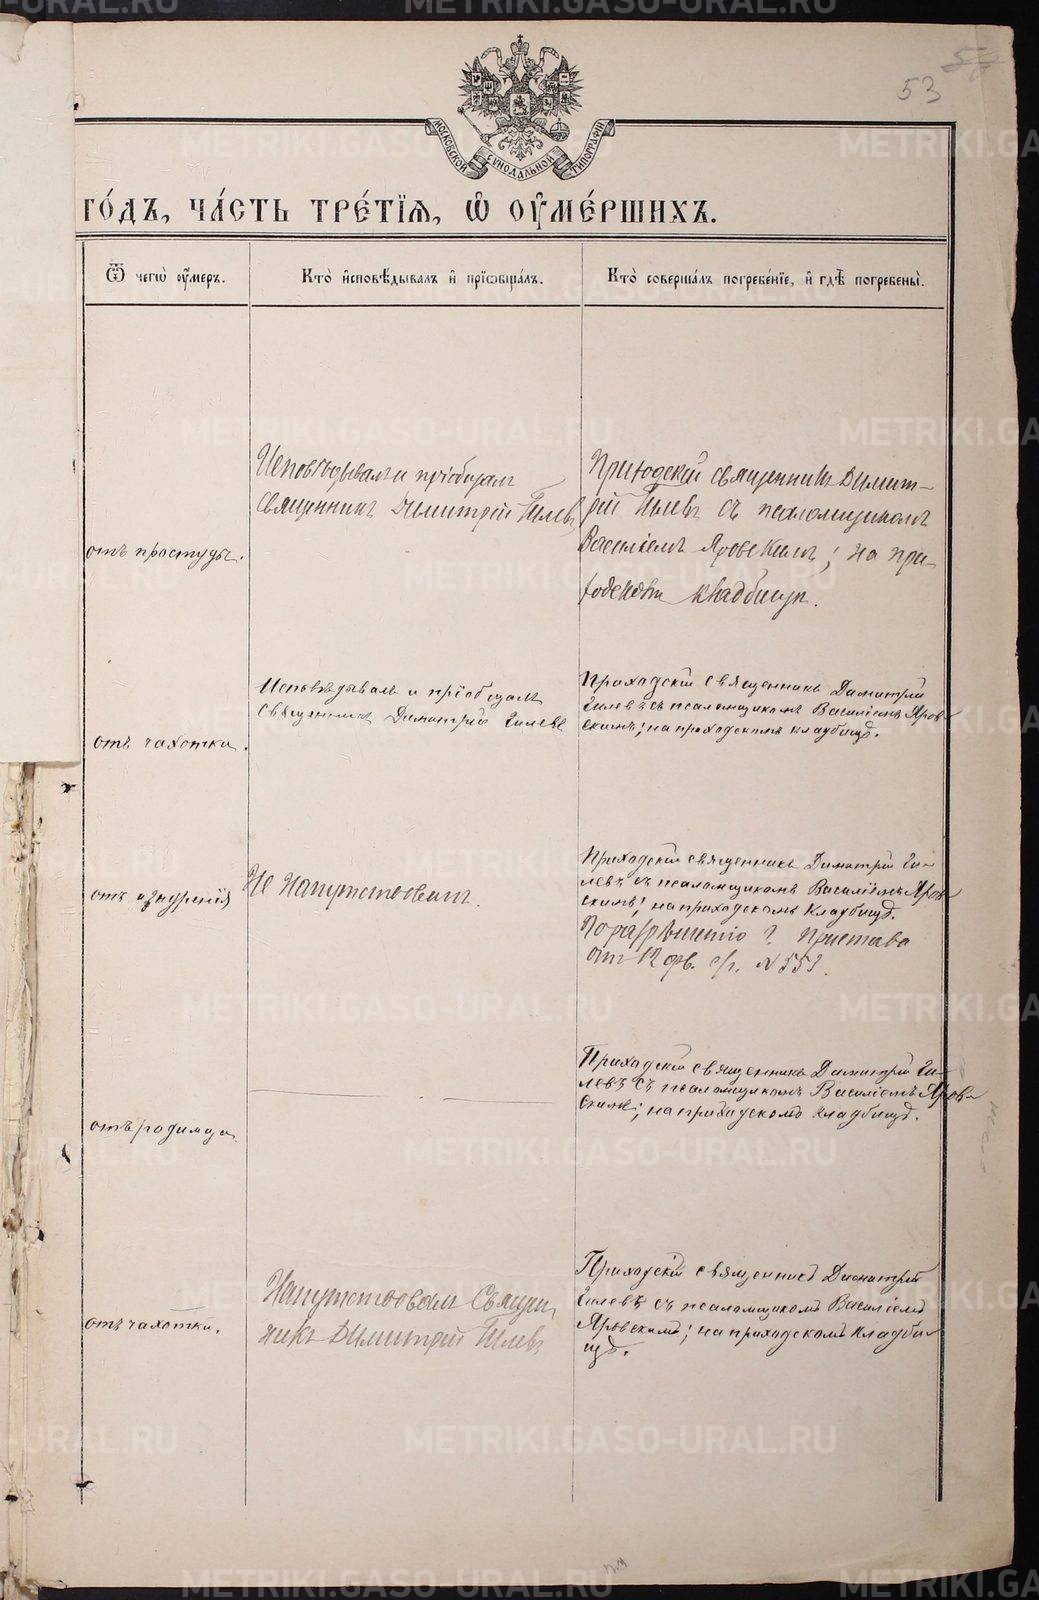 53
МОСКОВСКОЙ СѴНОДАЛЬНОЙ ТИПОГРАФІИ
ГО́ДЪ, ЧА́СТЬ ТРЕ́ТІѦ, Ѡ҆ ОУ҆МЕ́РШИХЪ.
Ѿ чегѡ̀ оу҆́меръ.
Кто̀ и҆сповѣ́дывалъ и҆ прїѡбща́лъ.
Кто̀ соверша́лъ погребе́нїе, и҆ гдѣ̀ погребены̀.
отъ простуды.
Исповѣдывалъ и пріобщалъ
священникъ Димитрій Гилевъ
Приходскій священникъ Димит-
рій Гилевъ съ псаломщикомъ
Василіемъ Яровскимъ; на при-
ходскомъ кладбищѣ.
отъ чахотки.
Исповѣдывалъ и пріобщалъ
священникъ Димитрій Гилевъ
Приходскій священникъ Димитрій
Гилевъ съ псаломщикомъ Василіемъ Яров-
скимъ; на приходскомъ кладбищѣ.
отъ изнуренія
Не напутствованъ.
Приходскій священникъ Димитрій Ги-
левъ съ псаломщикомъ Василіемъ Яров-
скимъ; на приходскомъ кладбищѣ.
По разрѣшенію Г. Пристава
отъ 12 фв. с/г. № 553.
отъ родимца
Приходскій священникъ Димитрій Ги-
левъ съ псаломщикомъ Василіемъ Яров-
скимъ; на приходскомъ кладбищѣ.
отъ чахотки.
Напутствовалъ Священ
никъ Димитрій Гилевъ
Приходскій священникъ Димитрій
Гилевъ съ псаломщикомъ Василіемъ
Яровскимъ; на приходскомъ кладби-
щѣ.
METRIKI.GASO-URAL.RU